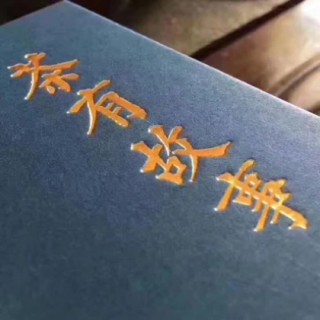 茶有故事